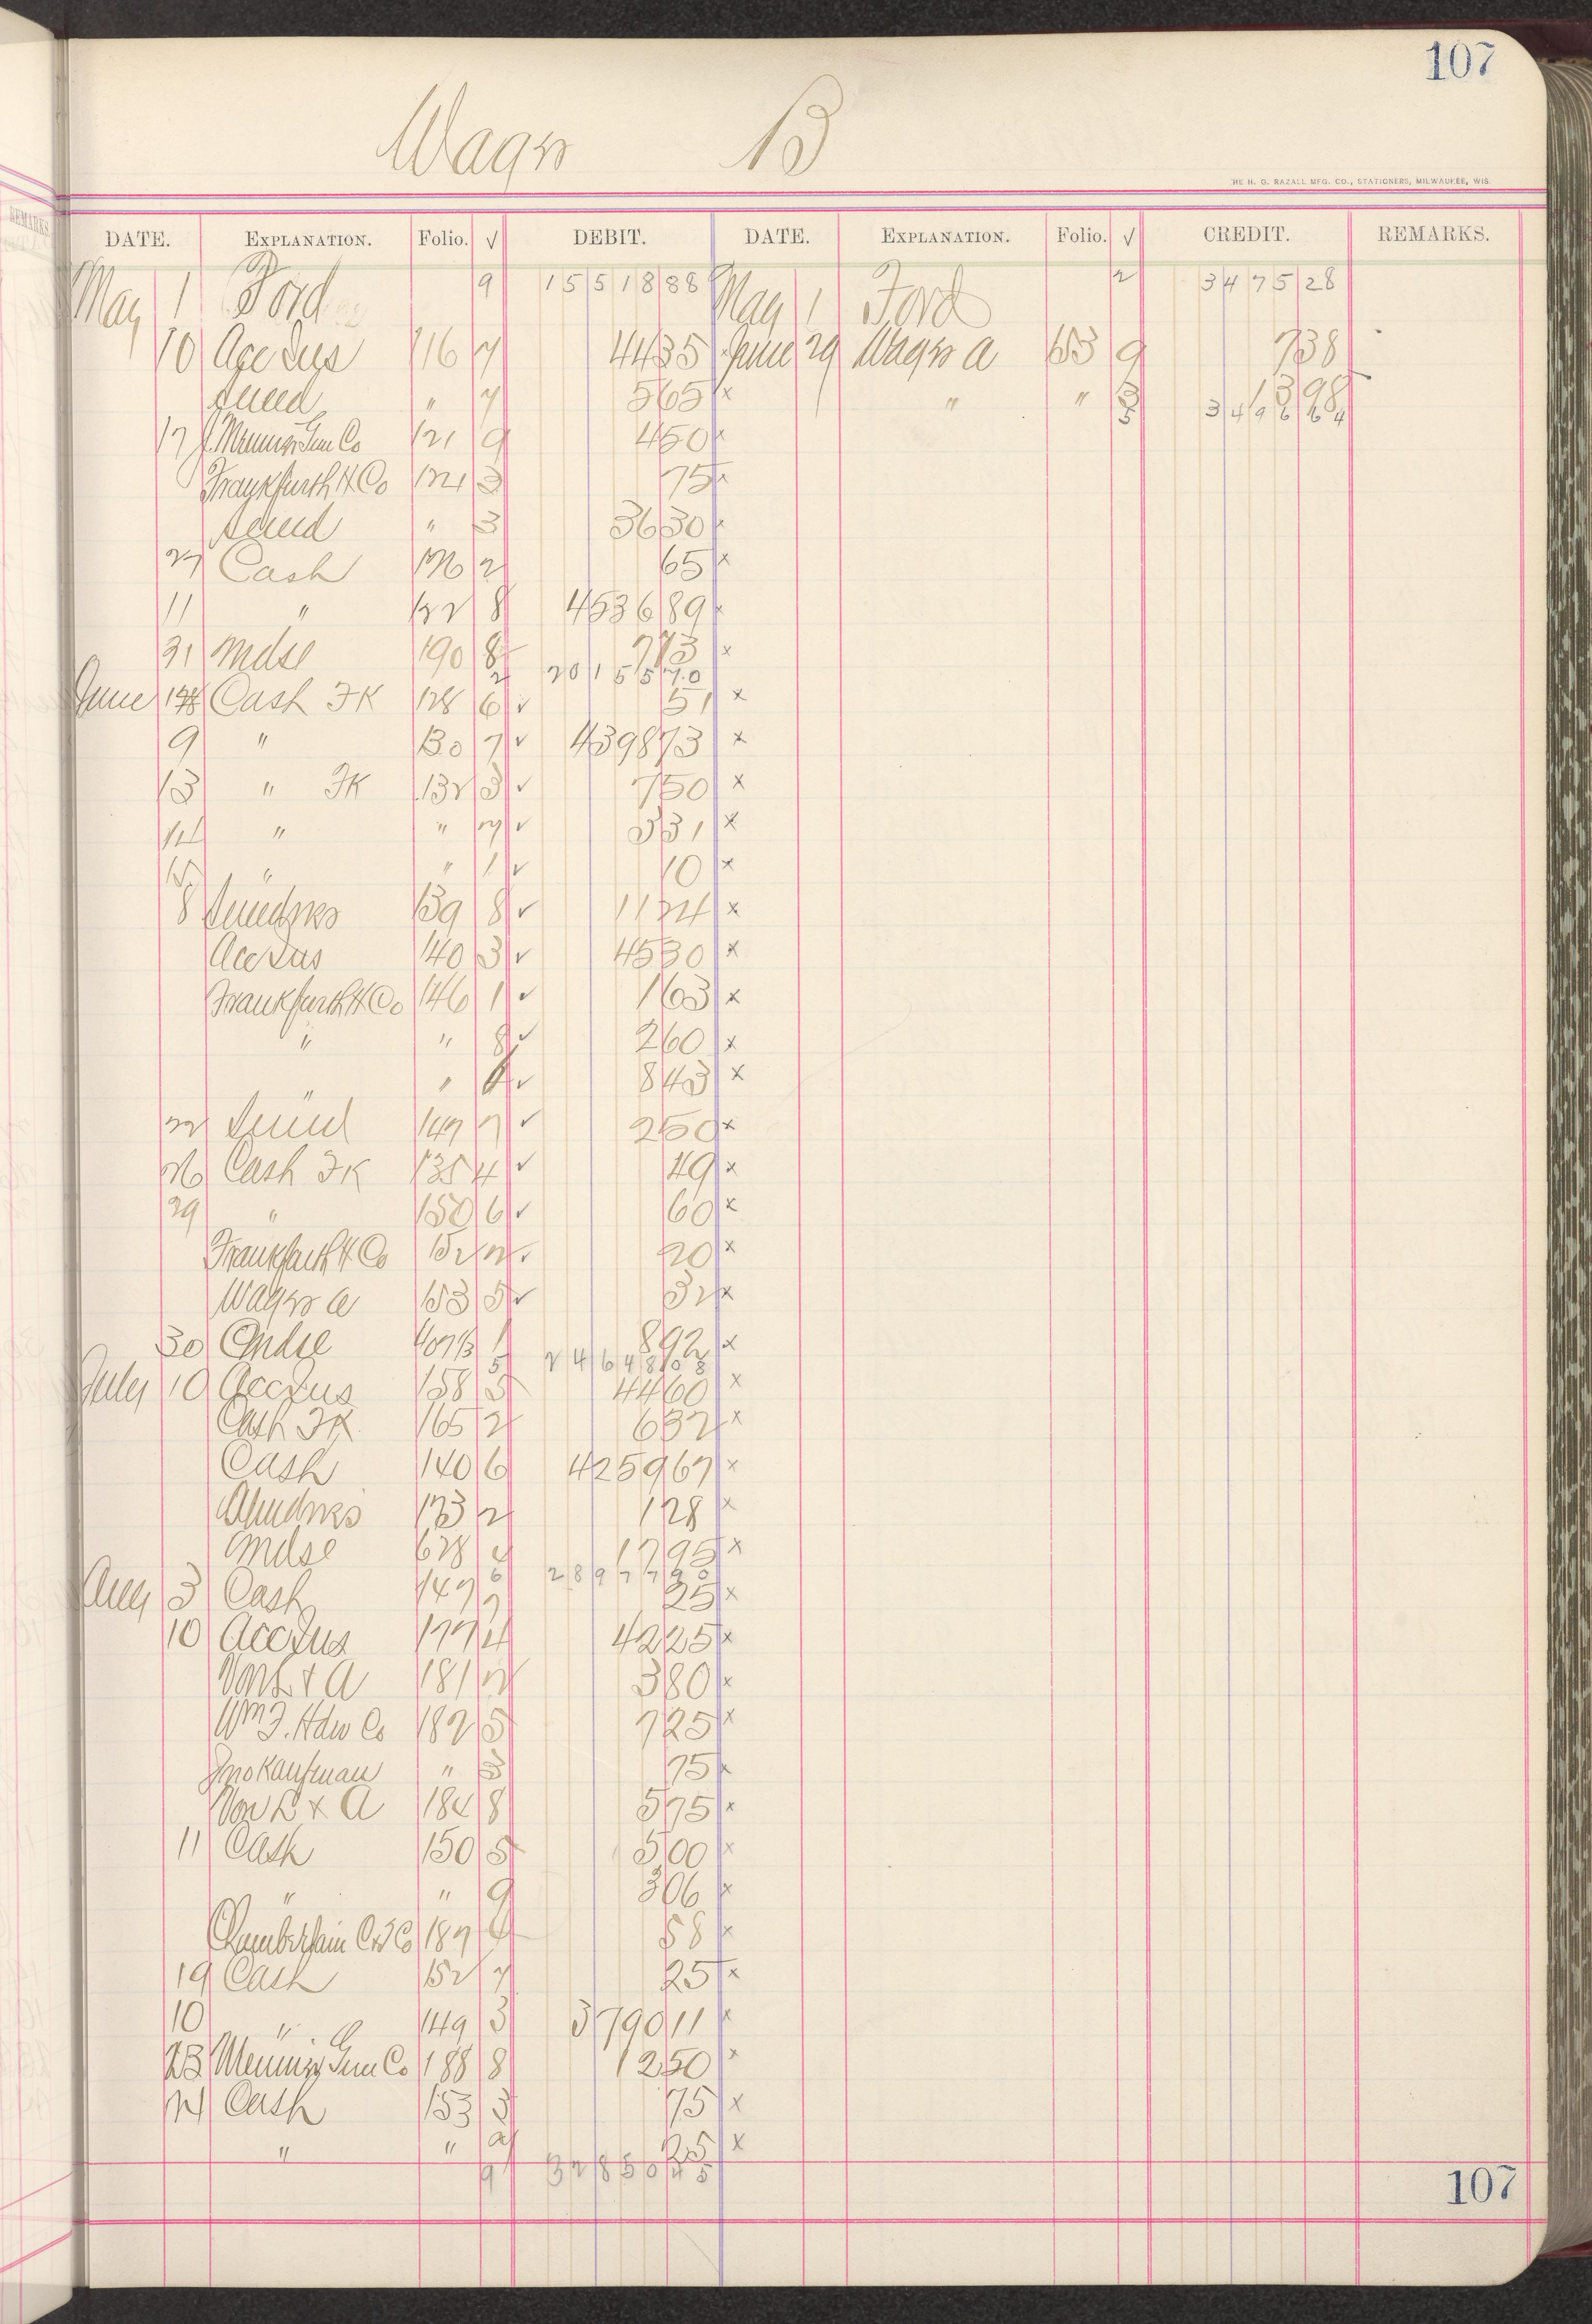 107
Wages B
THE H. G. RAZALL MFG. CO., STATIONERS, MILWAUKEE, WIS.
DATE. EXPLANATION. Folio. √ DEBIT. DATE. EXPLANATION. Folio. √ CREDIT. REMARKS.
May 1 Ford 9 1551888 May 1 Ford 2 347528
10 116 7 4435 June 29 Wages a 153 9 738
" 7 565 x " " 3 1398
5 349664
17 Gum Co 121 9 450 x
Frankfurth H Co 121 3 75 x
" 3 3630 x
27 Cash 126 2 65 x
11 " 122 8 453689 x
31 Mdse 190 8 773 x
2 2015570
June Cash FK 128 6 √ 51 x
9 " 130 7 √ 439873 x
13 " FK 132 3 √ 750 x
14 " " 7 √ 331 x
15 " " 1 √ 10 x
8 Sundries 139 8 √ 1124 x
140 3 √ 4530 x
Frankfurth H Co 146 1 √ 163 x
" " 8 √ 260 x
" " √ 843 x
22 149 7 √ 250 x
26 Cash FK 135 4 √ 49 x
29 " 150 6 √ 60 x
Frankfurth H Co 152 2 √ 20 x
Wages a 153 5 √ 32 x
30 Mdse 1 892 x
5 2464808
July 10 158 5 4460 x
Cash FK 165 2 632 x
Cash 140 6 425967 x
Sundries 173 2 128 x
Mdse 628 4 1795 x
6 2897790
Aug 3 Cash 147 7 25 x
10 177 4 4225 x
181 2 380 x
Wm F. Hdw Co 182 5 725 x
Jno Kaufman " 3 75 x
184 8 575 x
11 Cash 150 5 500 x
" " 9 306 x
Chamberlain Co 187 4 58 x
19 Cash 152 7 25 x
10 " 149 3 379011 x
23 Gum Co 188 8 1250 x
24 Cash 153 3 75 x
" " 25 x
9 3285045
107